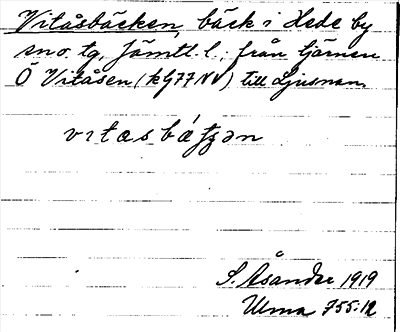 Vitåsbäcken, bäck i Hede by
sno. tg, Jämtl. l.; från tjärnen
Ö Vitåsen (kG77NV) till Ljusnan.
vıtasbáʃʒən
S. Åsander 1919
Ulma 755:12